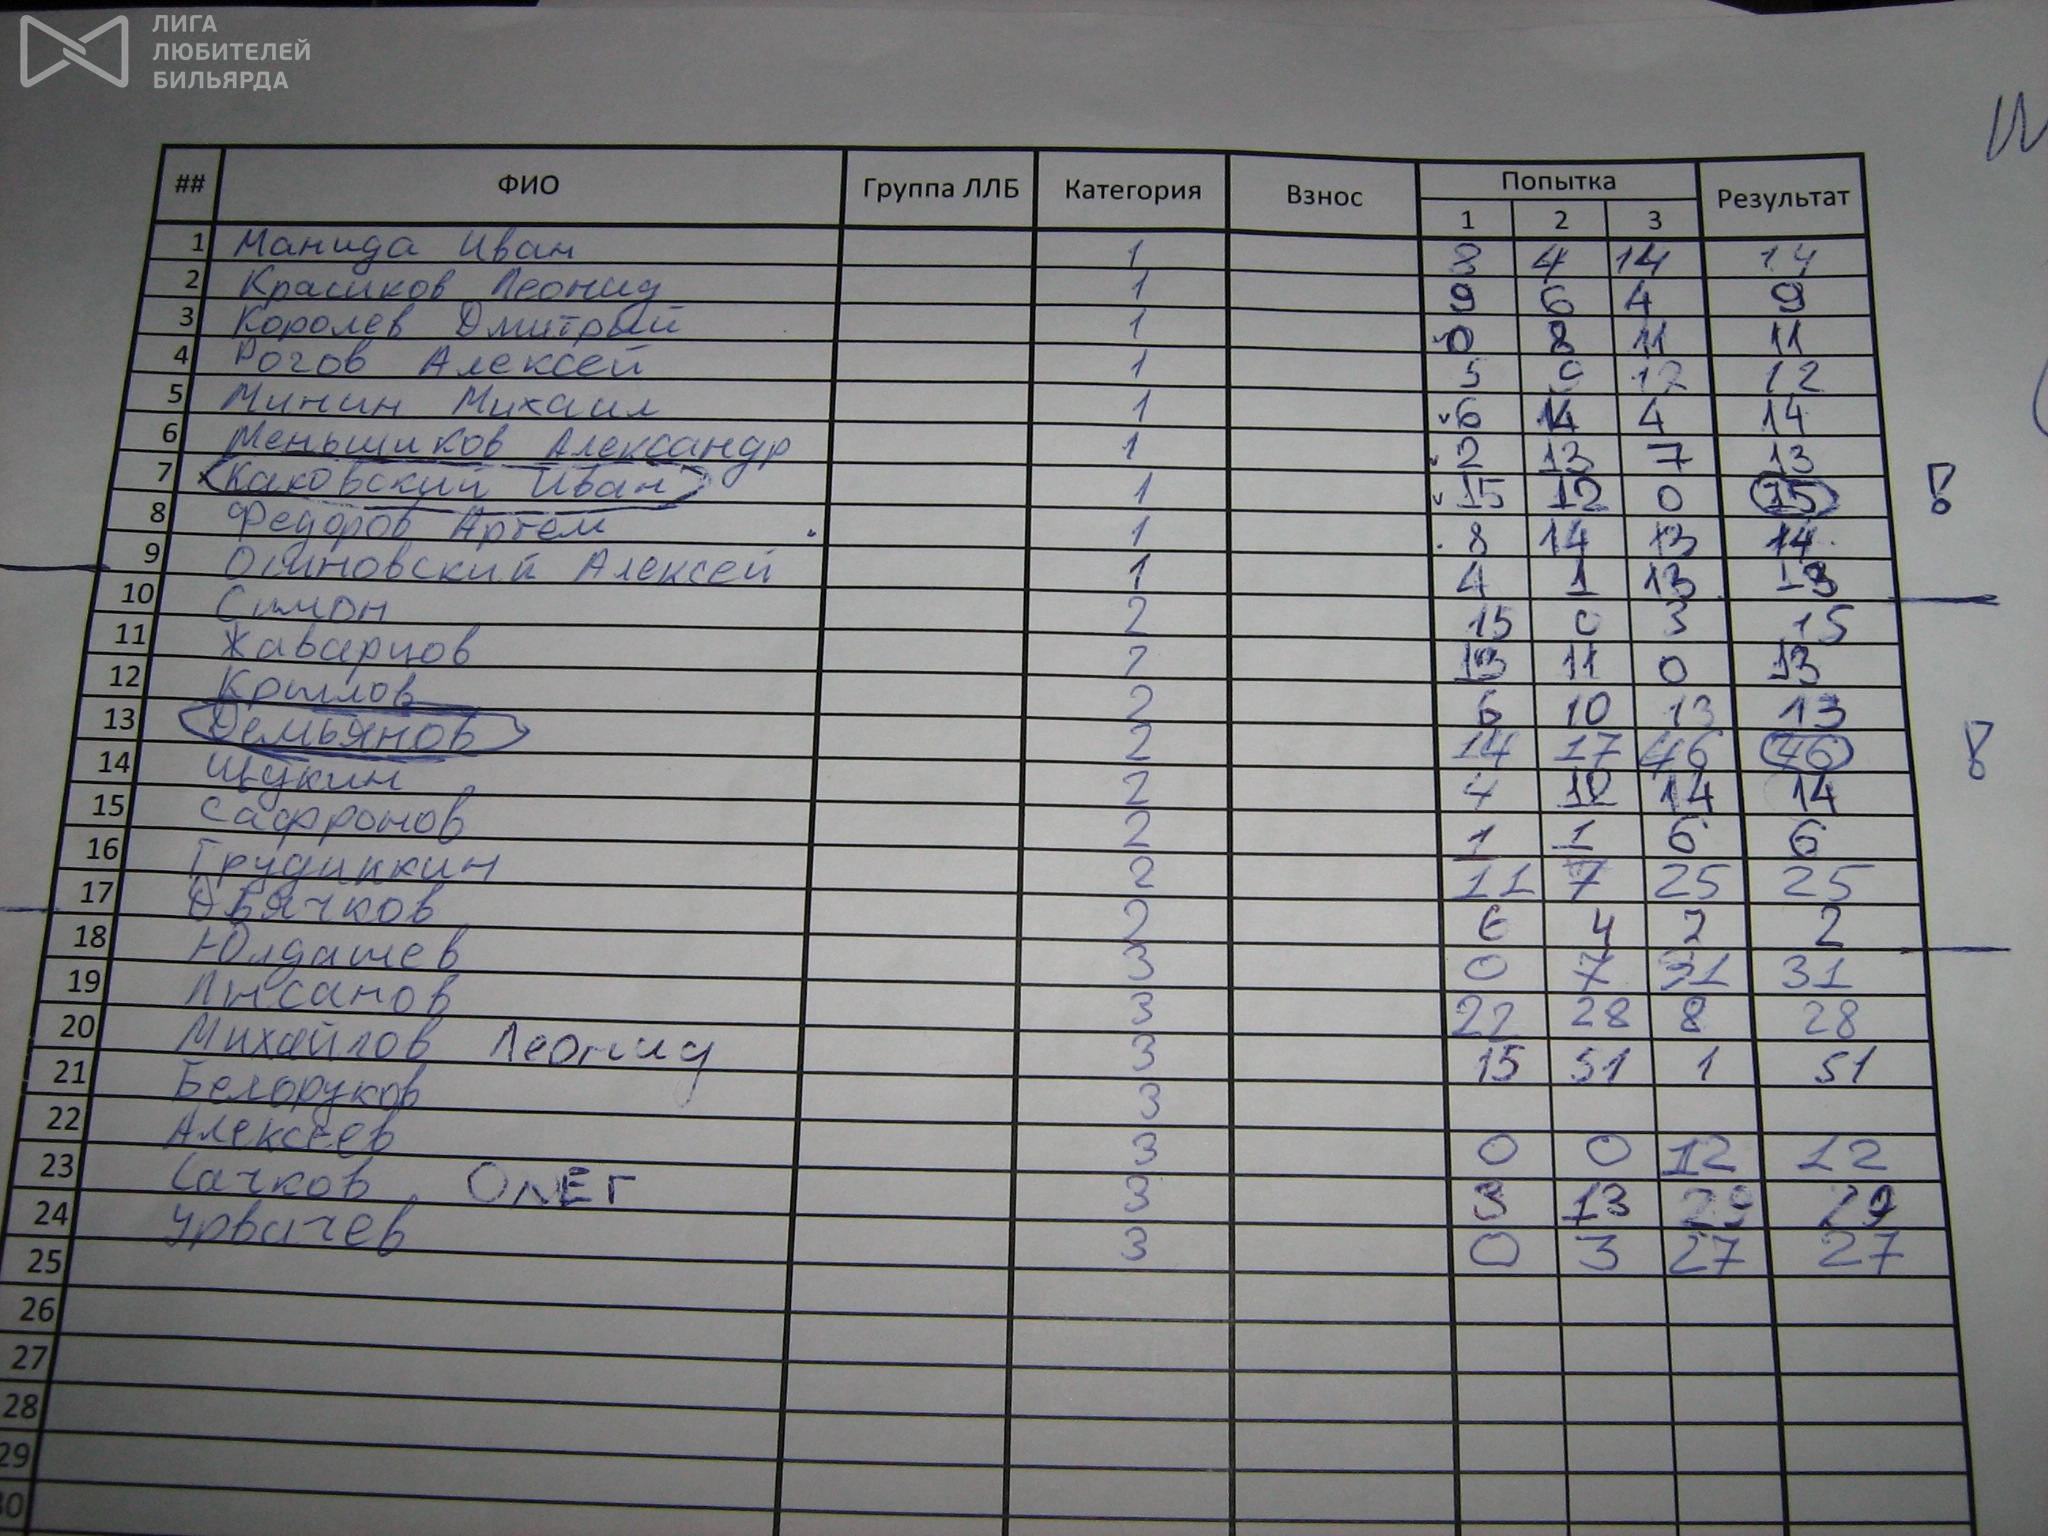 ЛИГА
ЛЮБИТЕЛЕЙ
БИЛЬЯРДА
## ФИО Группа ЛЛБ Категория Взнос Попытка Результат
1 2 3
1 Манида Иван 1 8 4 14 14
2 Красиков Леонид 1 9 6 4 9
3 Королев Дмитрый 1 0 8 11 11
4 Рогов Алексей 1 5 0 12 12
5 Минин Михаил 1 6 14 4 14
6 Меньшиков Александр 1 2 13 7 13
7 Каковский Иван 1 15 12 0 15
8 Федоров Артем 1 8 14 13 14
9 Осиновский Алексей 1 4 1 13 13
10 Симон 2 15 0 3 15
11 Жаварцов 2 13 11 0 13
12 Крылов 2 6 10 13 13
13 Демьянов 2 14 17 46 46
14 Щукин 2 4 12 14 14
15 Сафронов 2 1 1 6 6
16 2 11 7 25 25
17 Дьячков 2 6 4 2 2
18 Юлдашев 3 0 7 31 31
19 Лысанов 3 22 28 8 28
20 Михайлов Леонид 3 15 51 1 51
21 Белоруков 3
22 Алексеев 3 0 0 12 12
23 Сачков ОЛЕГ 3 3 13 29 29
24 Урвачев 3 0 3 27 27
25
26
27
28
29
30